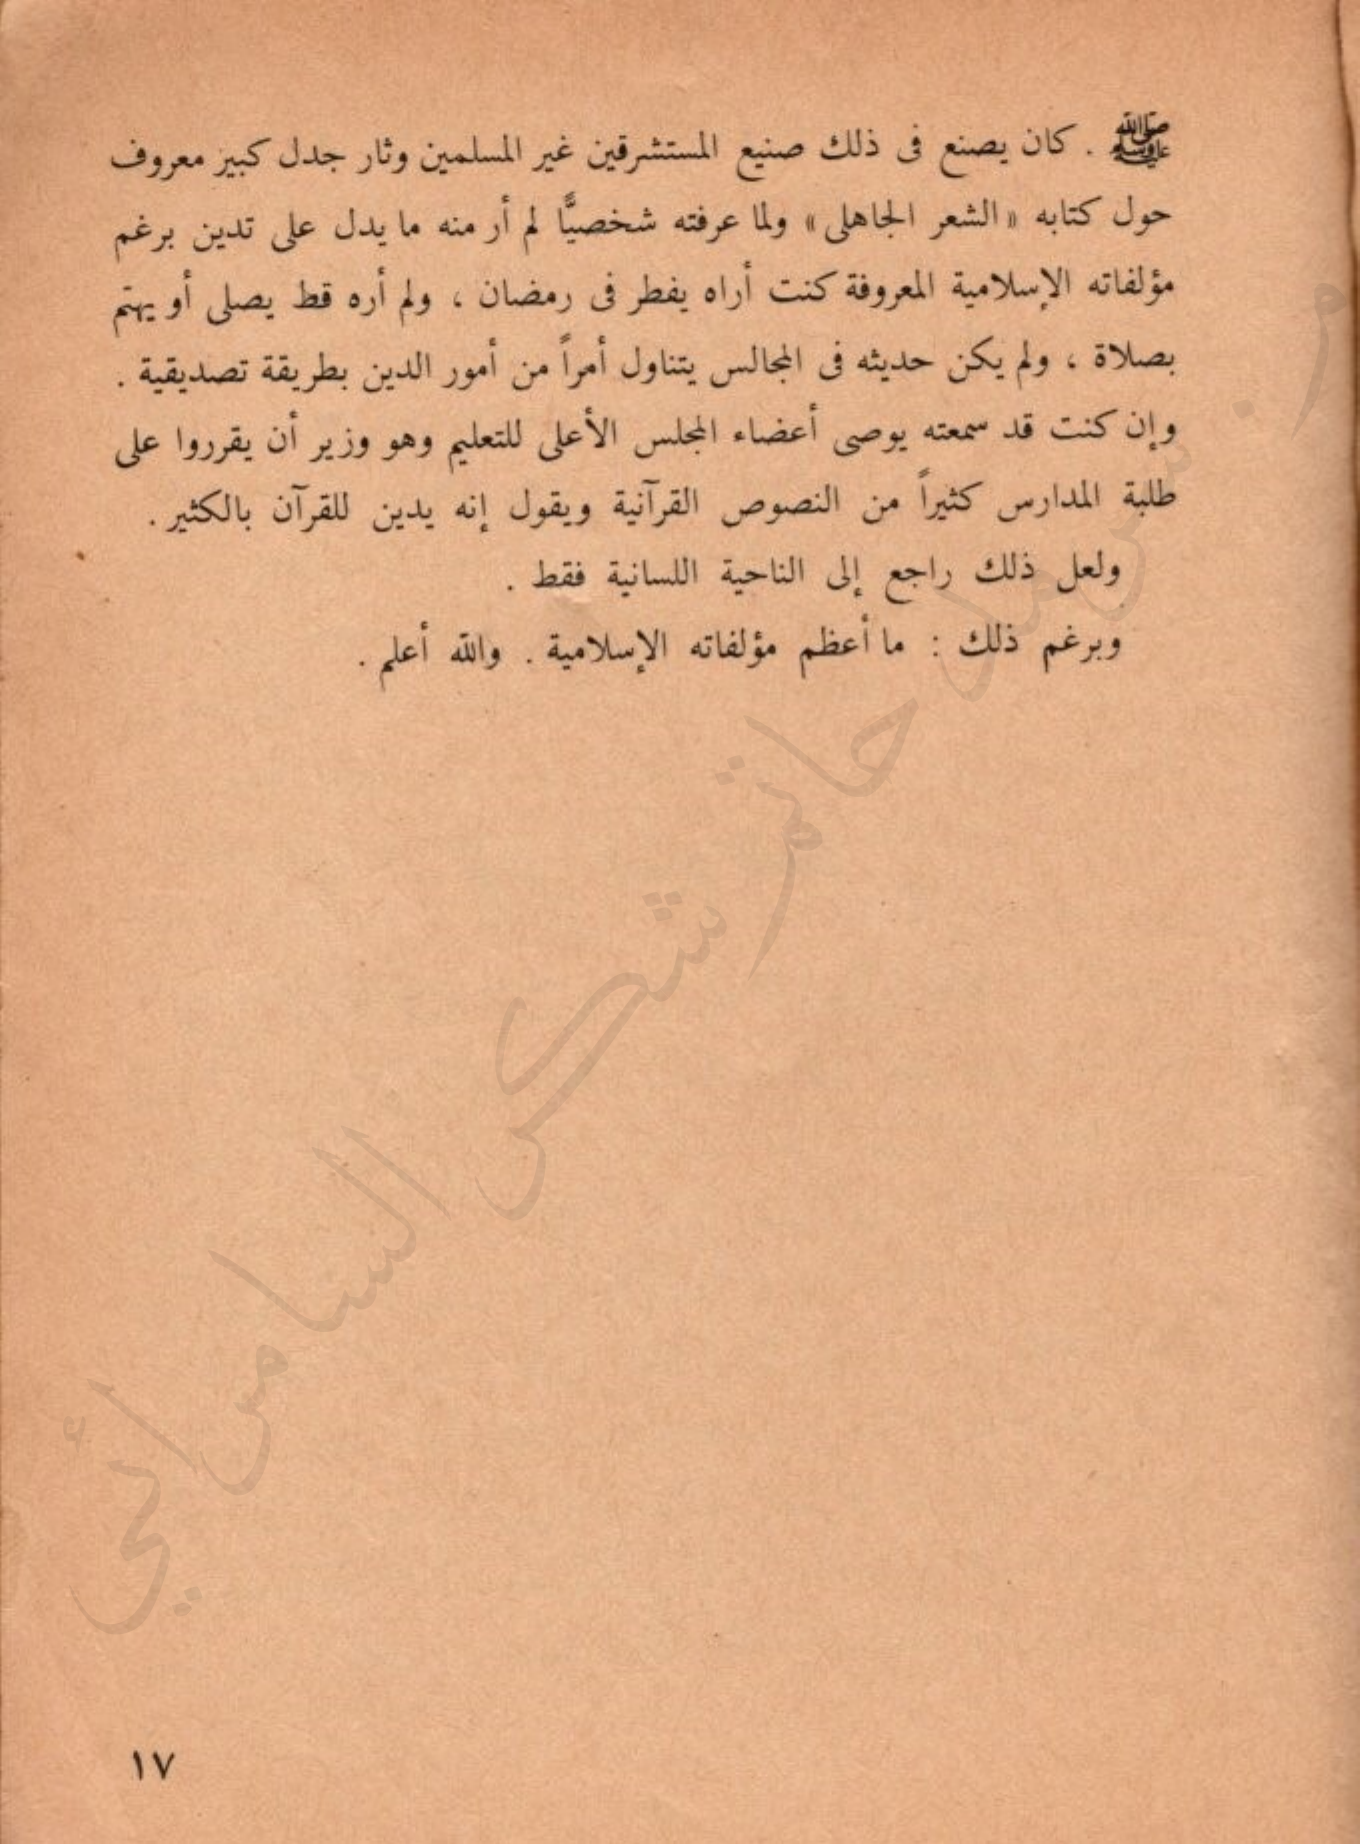 ﷺ . كان يصنع فى ذلك صنيع المستشرقين غير المسلمين وثار جدل كبيز معروف
حول كتابه « الشعر الجاهلى » ولما عرفته شخصيًّا لم أر منه ما يدل على تدين برغم
مؤلفاته الإسلامية المعروفة كنت أراه يفطر فى رمضان ، ولم أره قط يصلى أو يهتم
بصلاة ، ولم يكن حديثه فى المجالس يتناول أمراً من أمور الدين بطريقة تصديقية .
وإن كنت قد سمعته يوصى أعضاء المجلس الأعلى للتعليم وهو وزير أن يقرروا على
طلبة المدارس كثيراً من النصوص القرآنية ويقول إنه يدين للقرآن بالكثير .
ولعل ذلك راجع إلى الناحية اللسانية فقط .
وبرغم ذلك : ما أعظم مؤلفاته الإسلامية . والله أعلم .
حاتم شكر السامرائي
١٧